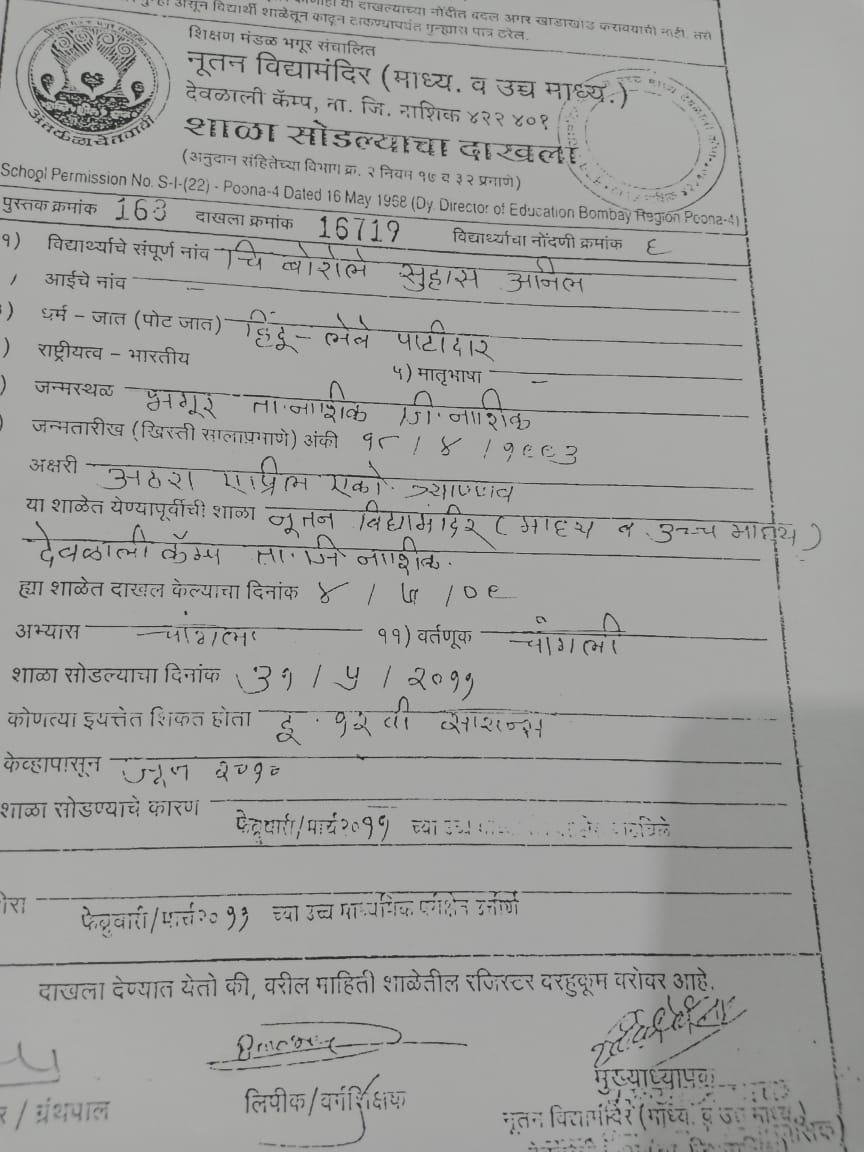 असून विद्यार्थी शाळेतून काढून टाकण्यापर्यंत गुन्ह्यास पात्र ठरेल.
या दाखल्याच्या नोंदीत बदल अगर खाडाखोड करावयाची नाही. तसे
शिक्षण मंडळ भगूर संचालित
नूतन विद्यामंदिर (माध्य. व उच्च माध्य.)
देवळाली कॅम्प, ना. जि. नाशिक ४२२ ४०१
शाळा सोडल्याचा दाखला
(अनुदान संहितेच्या विभाग क्र. २ नियम १७ व ३२ प्रमाणे)
School Permission No. S-I-(22) - Poona-4 Dated 16 May 1968 (Dy. Director of Education Bombay Region Poona-4)
पुस्तक क्रमांक 163 दाखला क्रमांक 16719 विद्यार्थ्याचा नोंदणी क्रमांक ६
१) विद्यार्थ्याचे संपूर्ण नांव चि बोरोले सुहास अनिल
आईचे नांव –
) धर्म – जात (पोट जात) हिंदू – लेवे पाटीदार
) राष्ट्रीयत्व – भारतीय ५) मातृभाषा –
) जन्मस्थळ भगूर ता. नाशिक जि. नाशिक
) जन्मतारीख (खिस्ती सालाप्रमाणे) अंकी १८ / ४ / १९९३
अक्षरी अठरा एप्रिल एको. त्र्याण्णव
या शाळेत येण्यापूर्वीची शाळा नूतन विद्यामंदिर (माध्य व उच्च माध्य)
देवळाली कॅम्प ता. जि नाशिक.
ह्या शाळेत दाखल केल्याचा दिनांक ४ / ७ / ०९
अभ्यास चांगला ११) वर्तणूक चांगली
शाळा सोडल्याचा दिनांक ३१ / ५ / २०११
कोणत्या इयत्तेत शिकत होता इ. १२ वी सायन्स
केव्हापासून जून २०१०
शाळा सोडण्याचे कारण फेब्रुवारी/मार्च २०११ च्या उच्च
फेब्रुवारी/मार्च २०११ च्या उच्च माध्यमिक परीक्षेत उत्तीर्ण
दाखला देण्यात येतो की, वरील माहिती शाळेतील रजिस्टर वरहुकूम बरोबर आहे.
/ ग्रंथपाल लिपीक/वर्गशिक्षक मुख्याध्यापक
नूतन विद्यामंदिर (माध्य. व उच्च माध्य.)